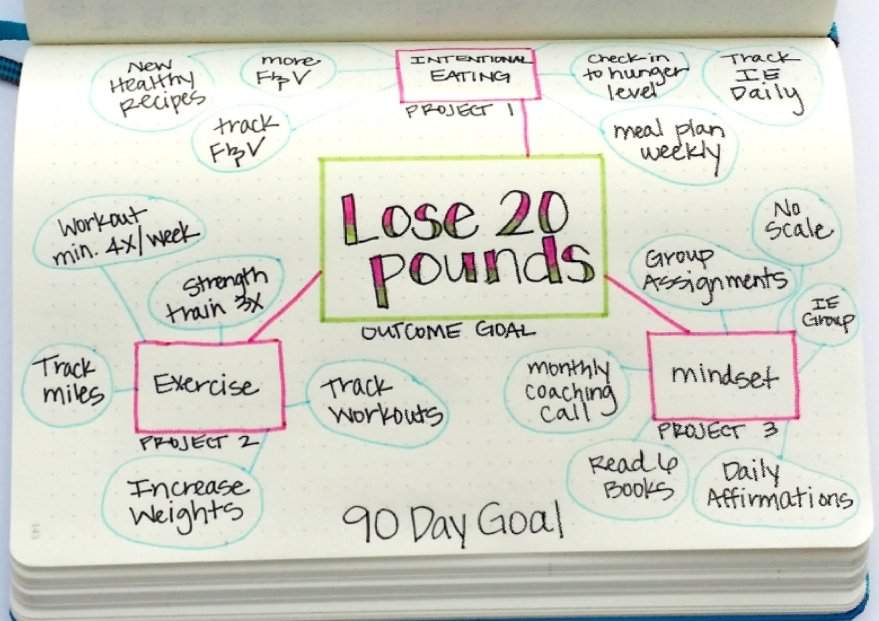 New
Healthy
Recipes
more
F & V
INTENTIONAL
EATING
PROJECT 1
Check in
to hunger
level
Track
IE
Daily
track
F & V
meal plan
weekly
Lose 20
pounds
OUTCOME GOAL
Workout
min. 4x/week
Strength
train 3x
Track
miles
Exercise
PROJECT 2
Track
Workouts
Increase
Weights
No
Scale
Group
Assignments
IE
Group
monthly
coaching
call
mindset
PROJECT 3
Read 6
Books
Daily
Affirmations
90 Day Goal